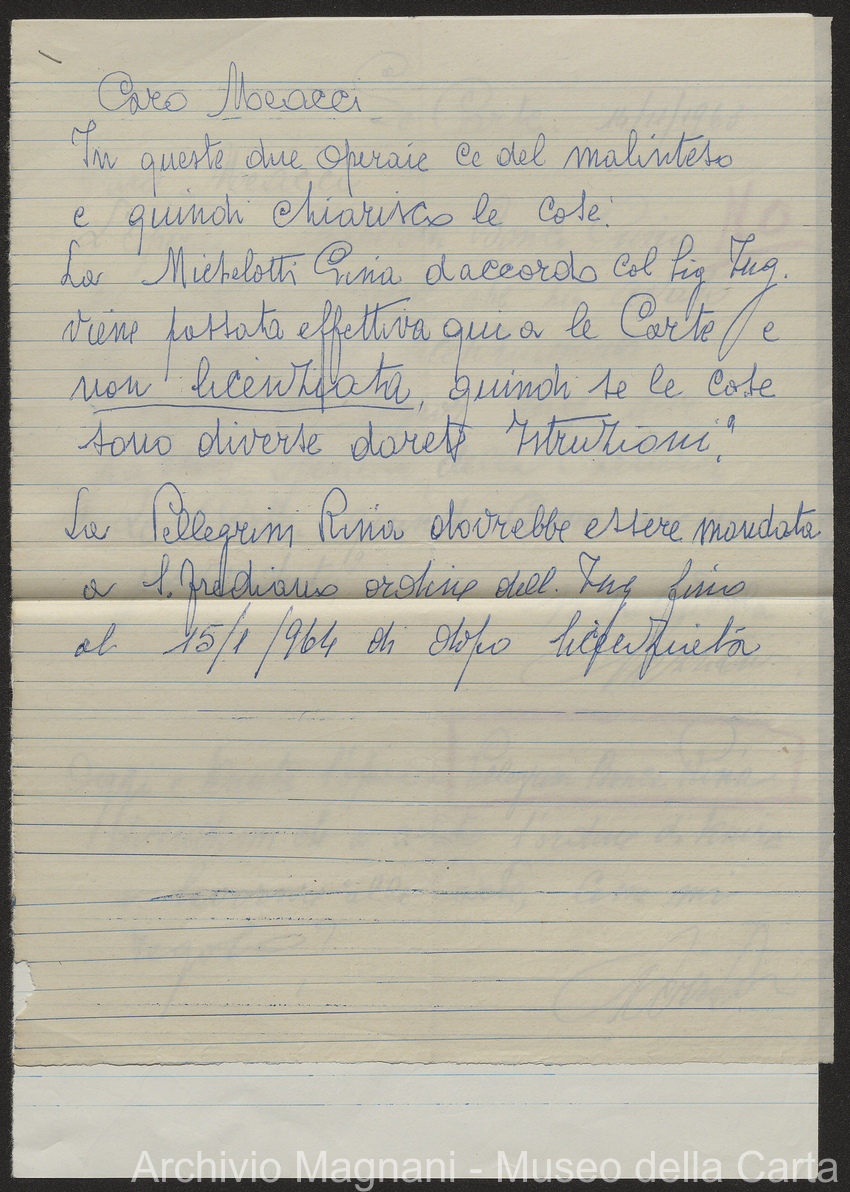 Caro Meacci
In queste due operaie ce del malinteso
e quindi chiarisco le cose.
La Michelotti Gina daccordo col Sig Ing.
viene passata effettiva qui a le Carte e
non licenziata, quindi se le cose
sono diverse darete Istruzioni.
La Pellegrini Rina dovrebbe essere mandata
a S. Frediano ordine dell. Ing fino
al 15/1/964 di dopo licenziata
Archivio Magnani - Museo della Carta